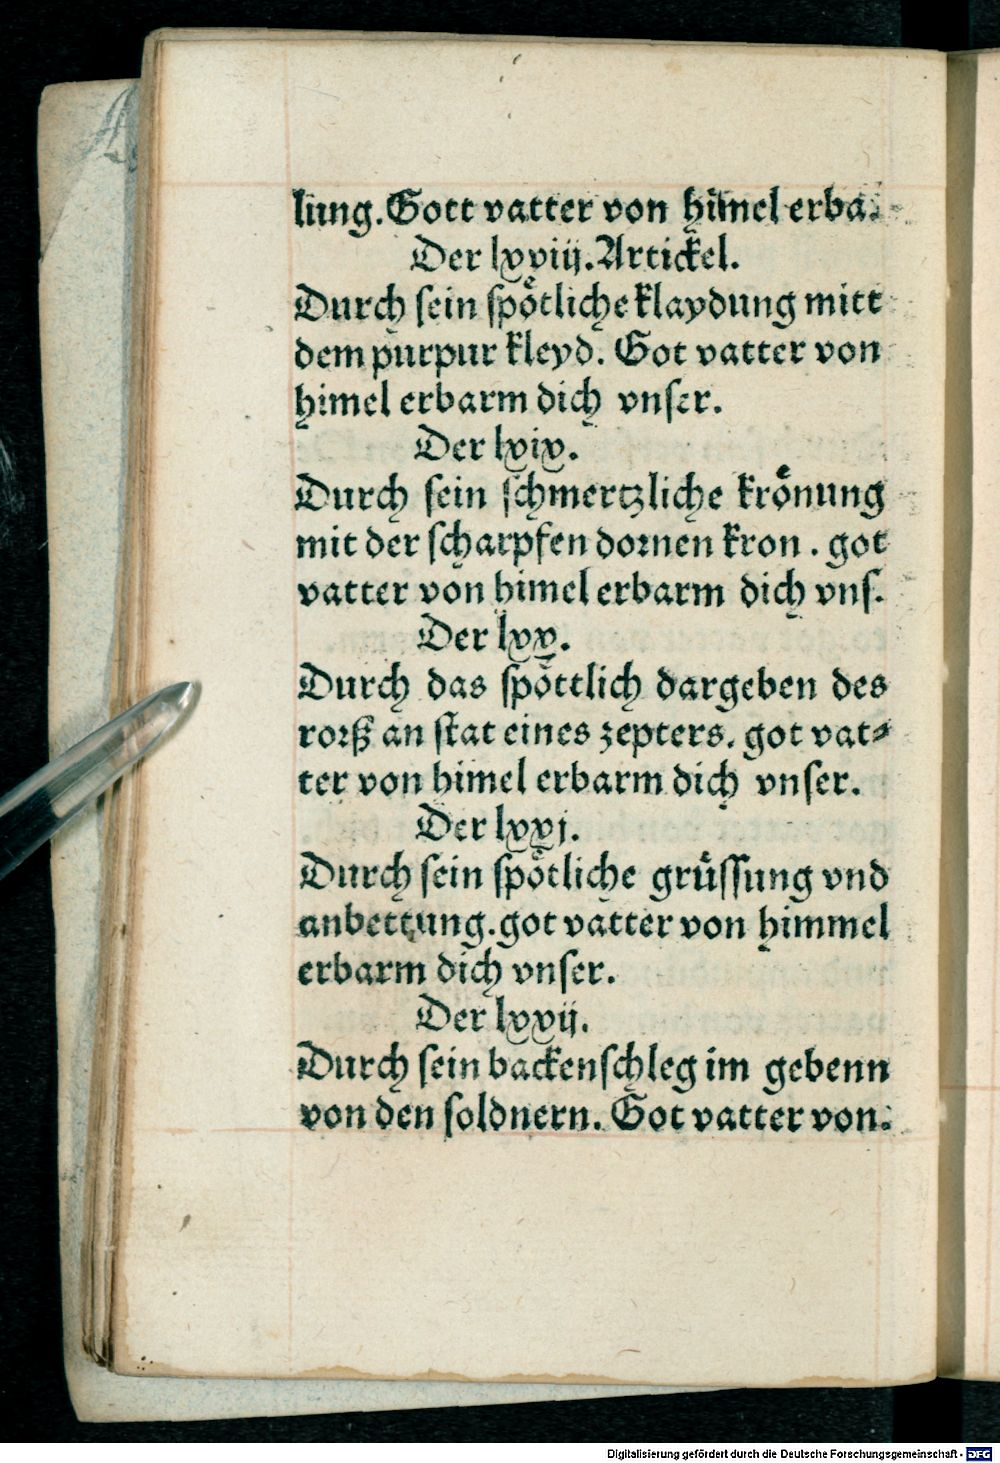 lung. Gott vatter von himel erba.
Der lxviij. Artickel.
Durch sein spoͤtliche klaydung mitt
dem purpur kleyd. Got vatter von
himel erbarm dich vnser.
Der lxix.
Durch sein schmertzliche kroͤnung
mit der scharpfen dornen kron . got
vatter von himel erbarm dich vns.
Der lxx.
Durch das spoͤttlich dargeben des
rorß an stat eines zepters. got vat⸗
ter von himel erbarm dich vnser.
Der lxxj.
Durch sein spoͤtliche gruͤssung vnd
anbettung. got vatter von himmel
erbarm dich vnser.
Der lxxij.
Durch sein backenschleg im gebenn
von den soldnern. Got vatter von.
Digitalisierung gefördert durch die Deutsche Forschungsgemeinschaft - DFG